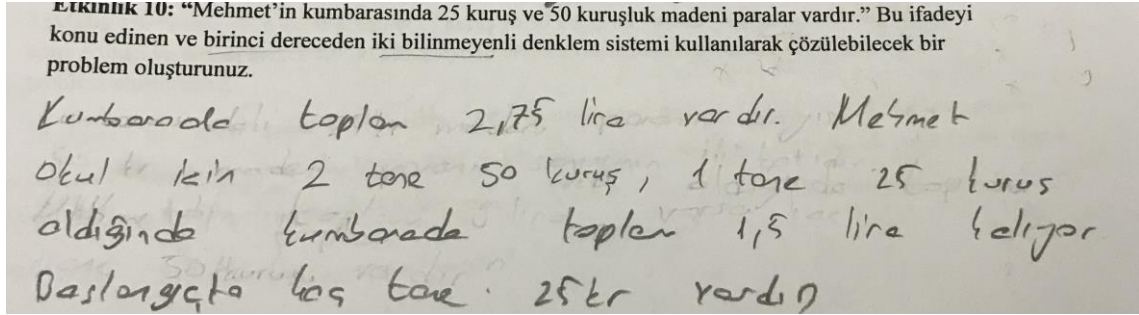 Etkinlik 10: “Mehmet’in kumbarasında 25 kuruş ve 50 kuruşluk madeni paralar vardır.” Bu ifadeyi
konu edinen ve birinci dereceden iki bilinmeyenli denklem sistemi kullanılarak çözülebilecek bir
problem oluşturunuz.
Kumbarada toplam 2,75 lira vardır. Mehmet
okul için 2 tane 50 kuruş, 1 tane 25 kuruş
aldığında kumbarada toplam 1,5 lira kalıyor
Başlangıçta kaç tane 25 kr vardı?